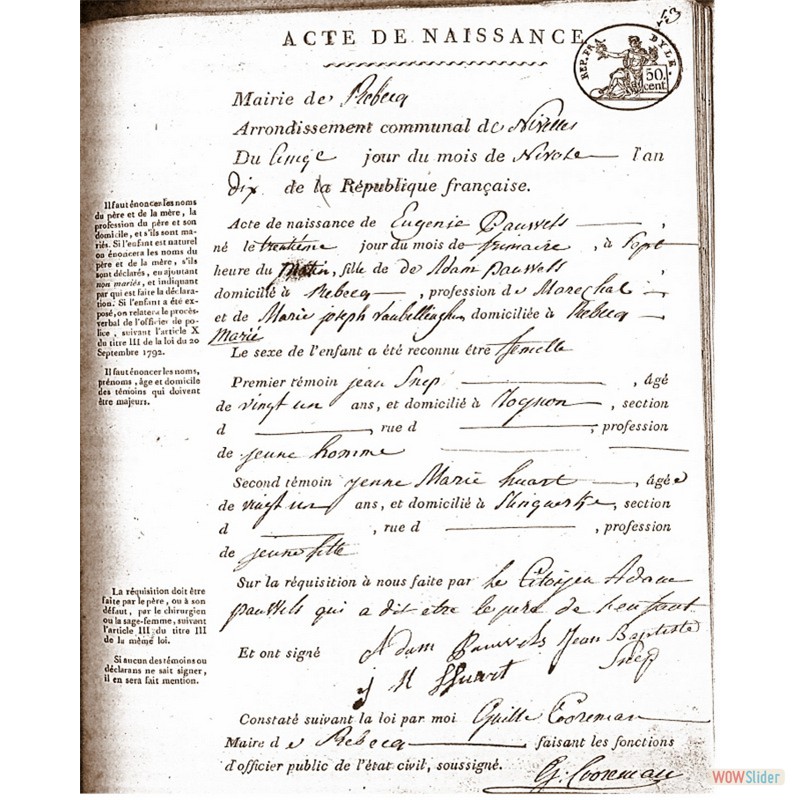 53
ACTE DE NAISSANCE
REP. FRA. DYLE.
50.
cent.
Mairie de Rebecq
Arrondissement communal de Nivelles
Du jour du mois de Nivose l'an
dix de la République française.
Il faut énoncer les noms
du père et de la mère, la
profession du père et son
domicile, et s'ils sont ma-
riés. Si l'enfant est naturel
on énoncera les noms du
père et de la mère, s'ils
sont déclarés, en ajoutant
non mariés, et indiquant
par qui est faite la déclara-
tion. Si l'enfant a été ex-
posé, on relatera le procès-
verbal de l'officier de po-
lice, suivant l'article X
du titre III de la loi du 20
Septembre 1792.
Il faut énoncer les noms,
prénoms, âge et domicile
des témoins qui doivent
être majeurs.
Acte de naissance de Eugenie Pauwels ,
né le trentième jour du mois de frumaire , à Sept
heure du Matin, fille de de Adam Pauwels
domicilié à Rebecq , profession de Marechal
et de Marie joseph domiciliée à Rebecq
Marié
Le sexe de l'enfant a été reconnu être femelle
Premier témoin jean Snep , âgé
de vingt un ans, et domicilié à , section
d , rue d , profession
de jeune homme
Second témoin jenne Marie huart , âgée
de vingt un ans, et domicilié à , section
d , rue d , profession
de jeune fille
La réquisition doit être
faite par le père, ou à son
défaut, par le chirurgien
ou la sage-femme, suivant
l'article III du titre III
de la même loi.
Si aucun des témoins ou
déclarans ne sait signer,
il en sera fait mention.
Sur la réquisition à nous faite par Le Citoyen Adam
pauwels qui a dit etre le pere de lenfant
Et ont signé Adam Pauwels Jean Baptiste
Snep
j M Huart
Constaté suivant la loi par moi Guille Cooreman
Maire de Rebecq faisant les fonctions
d'officier public de l'état civil, soussigné.
G. Cooreman
WOWSlider